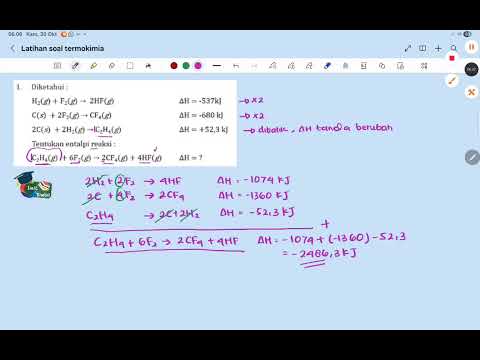 06.06 Kam, 30 Okt
Latihan soal termokimia
1. Diketahui :
H₂(g) + F₂(g) → 2HF(g) ΔH = -537kJ → x2
C(s) + 2F₂(g) → CF₄(g) ΔH = -680 kJ → x2
2C(s) + 2H₂(g) → C₂H₄(g) ΔH = +52,3kJ → dibalik, ΔH tanda berubah
Tentukan entalpi reaksi :
C₂H₄(g) + 6F₂(g) → 2CF₄(g) + 4HF(g) ΔH = ?
2H₂ + 2F₂ → 4HF ΔH = -1074 KJ
2C + 4F₂ → 2CF₄ ΔH = -1360 KJ
C₂H₄ → 2C + 2H₂ ΔH = -52,3 KJ
+
C₂H₄ + 6F₂ → 2CF₄ + 4HF ΔH = -1074 + (-1360) - 52,3
= -2486,3 KJ